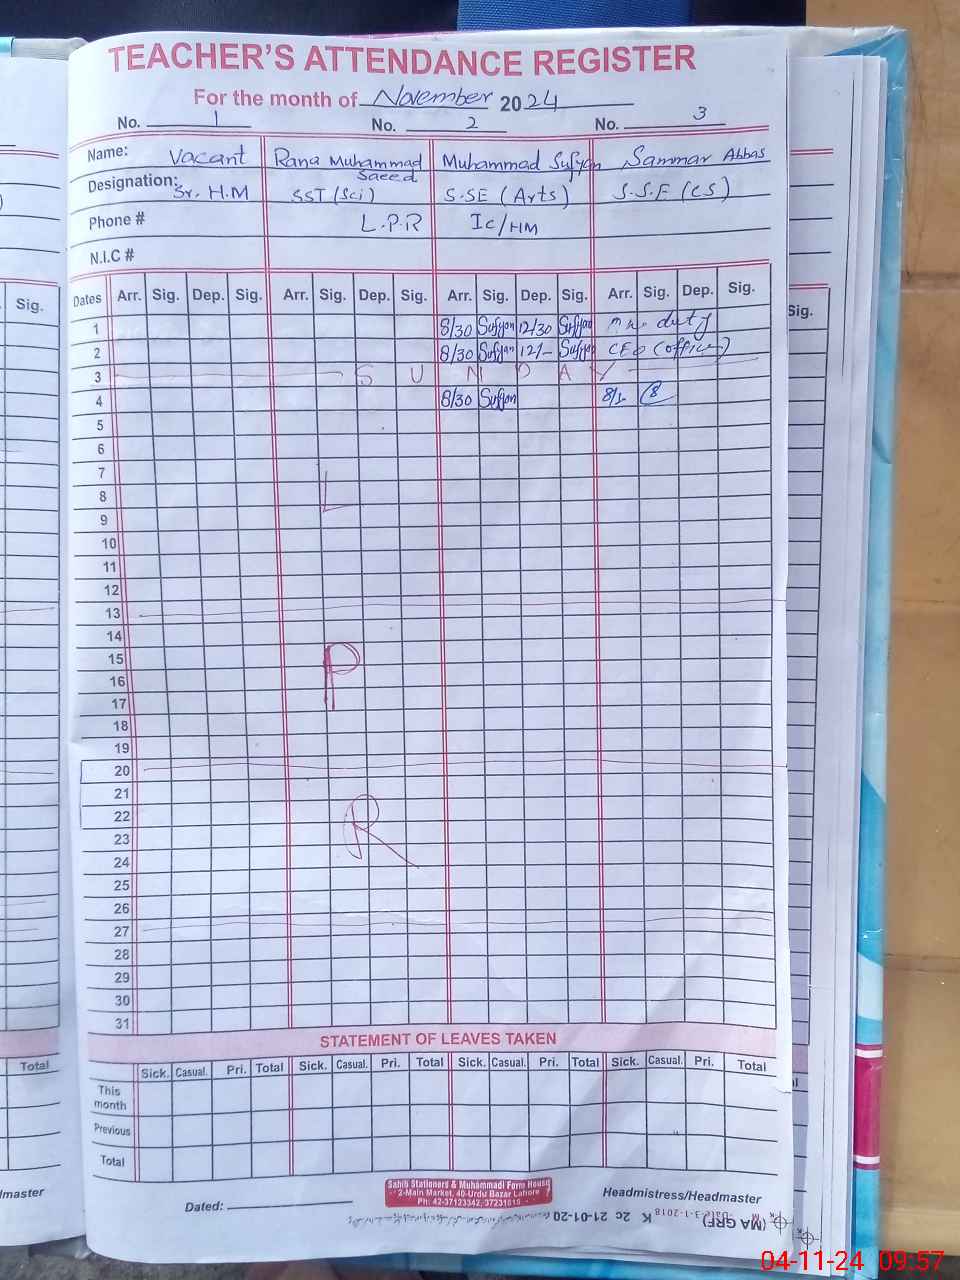 TEACHER'S ATTENDANCE REGISTER
For the month of November 2024
No. 1 No. 2 No. 3
Name: Vacant Rana Muhammad Saeed Muhammad Sufyan Sammar Abbas
Designation: Sr. H.M SST (Sci) S.SE (Arts) S.S.E (CS)
Phone # L.P.R Ic/HM
N.I.C #
Dates Arr. Sig. Dep. Sig. Arr. Sig. Dep. Sig. Arr. Sig. Dep. Sig. Arr. Sig. Dep. Sig.
1 8/30 Sufyan 12/30 Sufyan on duty
2 8/30 Sufyan 12/- Sufyan CEO (office)
3 S U N D A Y
4 8/30 Sufyan
5
6
7
8 L
9
10
11
12
13
14
15 P
16
17
18
19
20
21
22
23 R
24
25
26
27
28
29
30
31
STATEMENT OF LEAVES TAKEN
Sick. Casual. Pri. Total Sick. Casual. Pri. Total Sick. Casual. Pri. Total Sick. Casual. Pri. Total
This month
Previous
Total
Dated:
Sahib Stationers & Muhammadi Form House
2-Main Market, 40-Urdu Bazar Lahore
Ph: 42-37123342, 37231010
Headmistress/Headmaster
(MA GRF) K 2c 21-01-20
Sig.
Total
Sig.
04-11-24 09:57